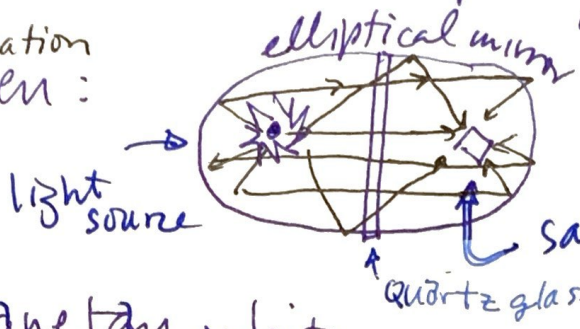 ation
elliptical mirror
en :
light
source
sa
Quartz glas